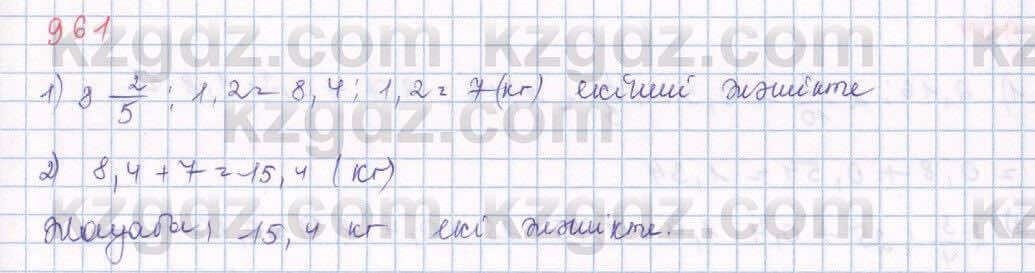 961
1) 8 2/5 : 1,2 = 8,4 : 1,2 = 7 (кг) екінші жәшікте
2) 8,4 + 7 = 15,4 (кг)
Жауабы: 15,4 кг екі жәшікте.
kzgdz.com kzgdz.com kzgdz.com
kzgdz.com kzgdz.com